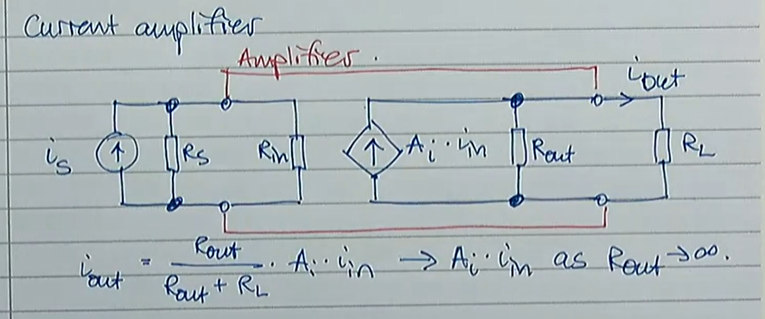 Current amplifier
Amplifier.
iout
is
Rs
Rin
Ai · iin
Rout
RL
iout = Rout / Rout + RL · Ai · iin → Ai · iin as Rout → ∞.